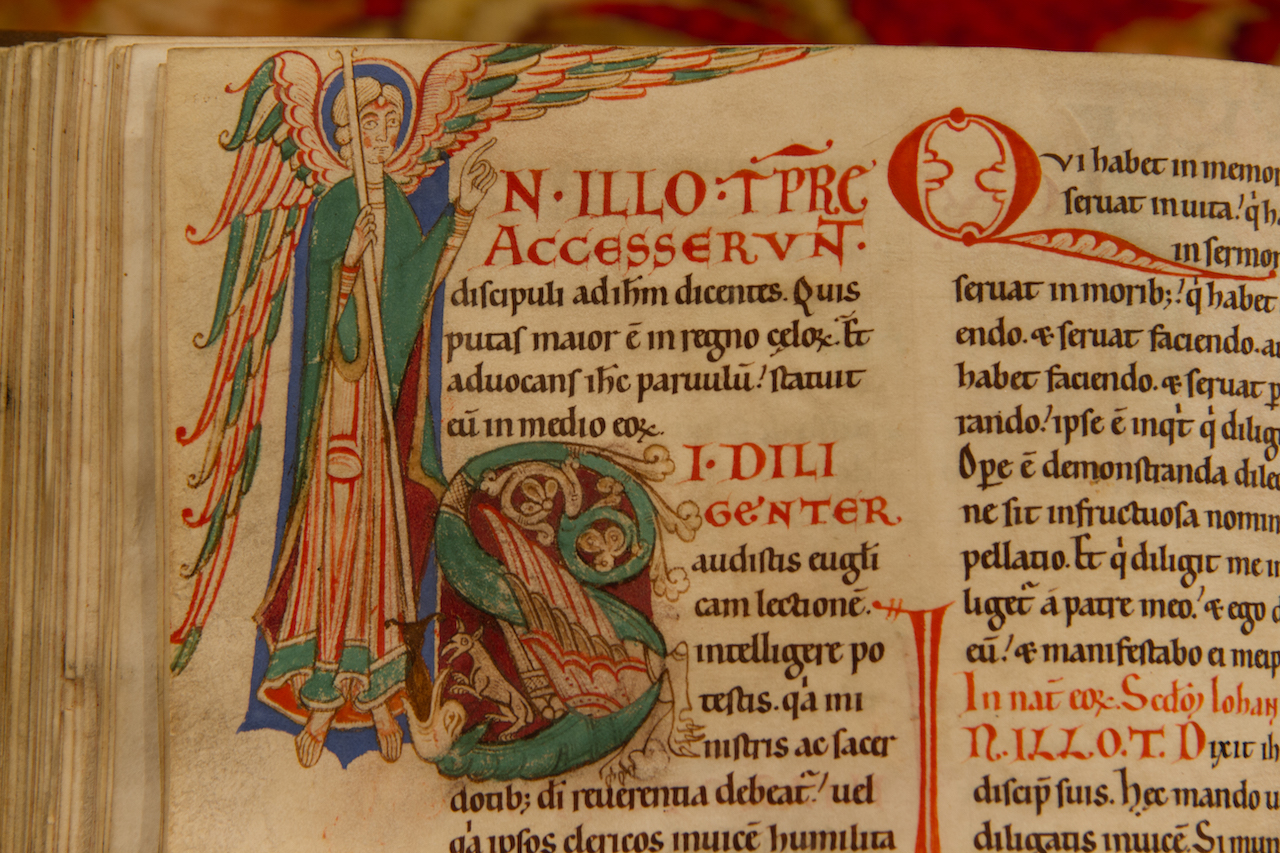 N·ILLO·T̄PR̄E
ACCESSERVN̄T·
diſcipuli ad ih̄m dicentes. Quis
putaſ maior ē in regno cęloꝝ. Et
aduocanſ ih̄c paruulū! ſtatuit
eū in medio eoꝝ.
SI·DILI
GENTER
audiſtis eugłi
cam lectionē.
intelligere po
teſtis. q̄a mi
niſtris ac ſacer
dotib; di reuerentia debeat̄! uel
q̄a ipſos clericos inuicē humilita
QVI habet in memor
ſeruat in uita! q̇ h
in ſermon
ſeruat in morib;! q̇ habet
endo. & ſeruat faciendo. a
habet faciendo. & ſeruat p
rando! ipſe ē inqt q̇ dilig
Ope ē demonſtranda dile
ne ſit infructuoſa nomin
pellatio. Et q̇ diligit me
liget̄ a patre meo! & ego
eū! & manifeſtabo ei meip
In nat̄ eoꝝ. Scdm Iohan
N.ILLO.T. Dixit ih
diſcip̄ ſuis. Hec mando u
diligatis inuicē. Si mun